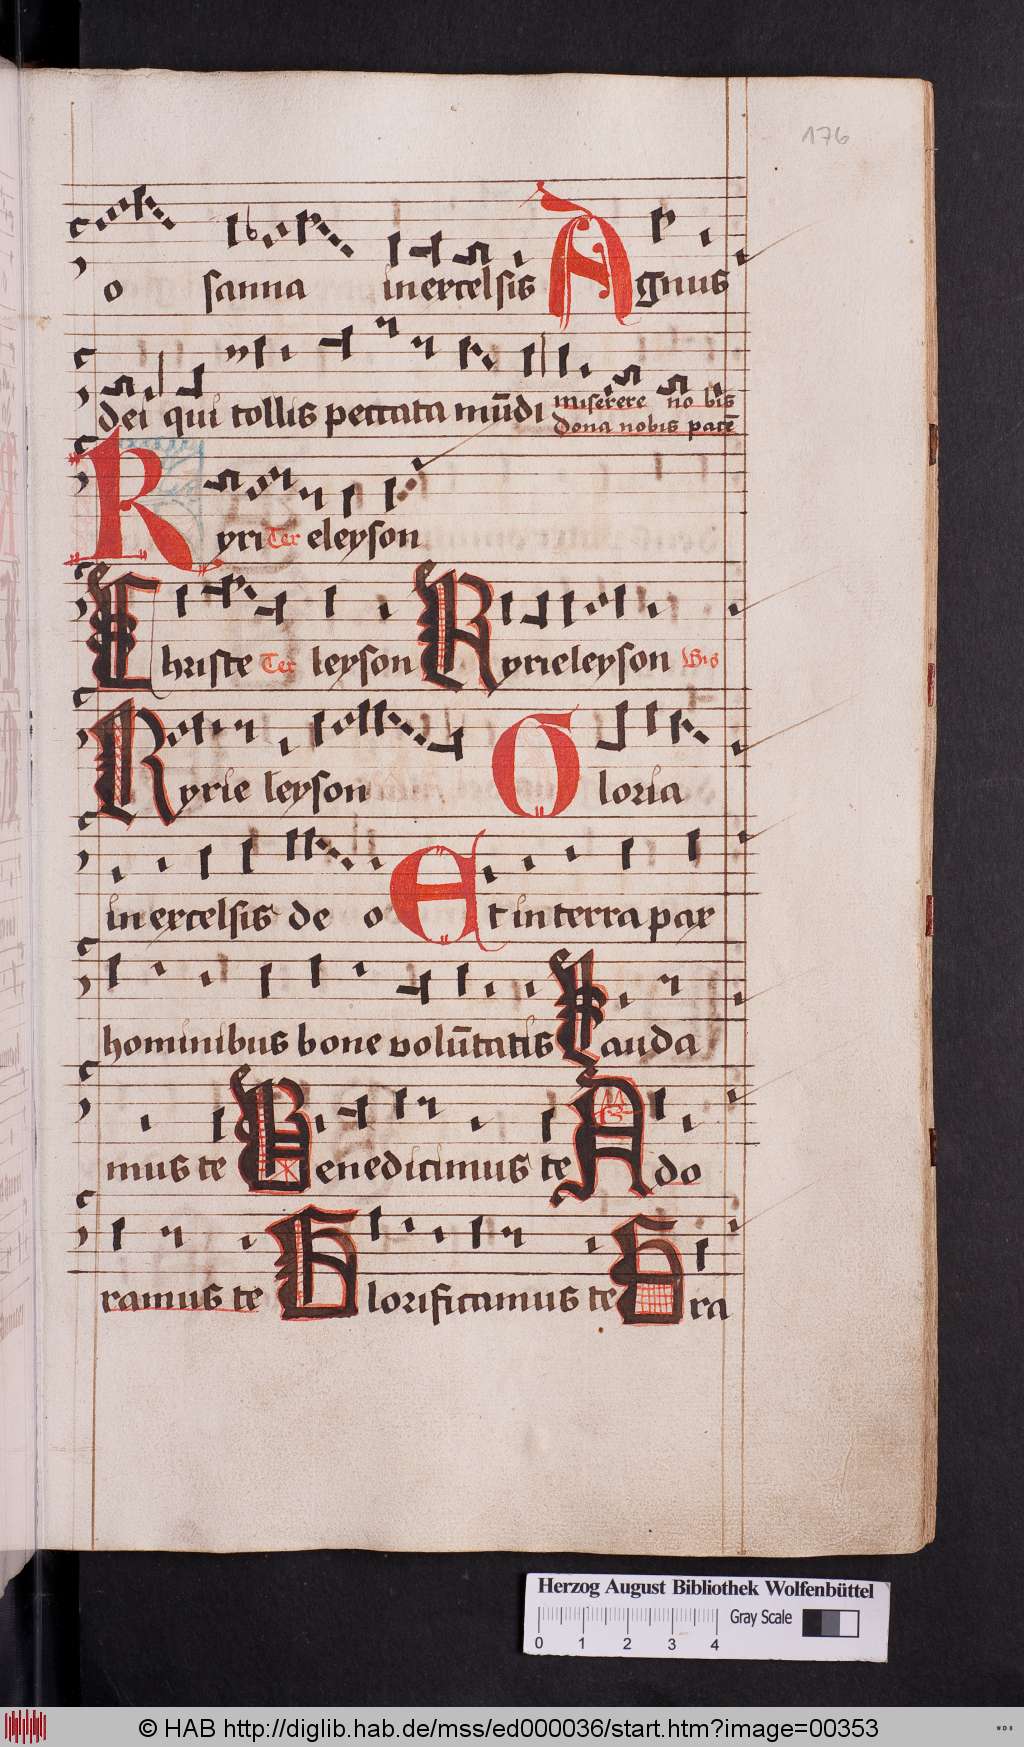 176
o sanna in excelsis Agnus
dei qui tollis peccata mūdi miserere no bis
dona nobis pacē
Kyri Ter eleyson
Christe Ter leyson Kyrieleyson Bis
Kyrie leyson Gloria
in excelsis de o Et in terra pax
hominibus bone volūtatis Lauda
mus te Benedicimus te Ado
ramus te Glorificamus te Gra
Herzog August Bibliothek Wolfenbüttel
Gray Scale
0 1 2 3 4
© HAB http://diglib.hab.de/mss/ed000036/start.htm?image=00353